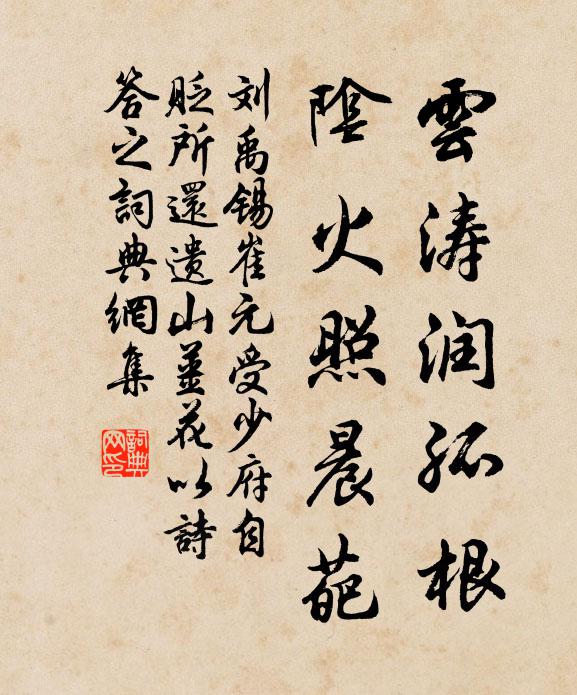 雲涛润孤根
陰火照晨葩
刘禹锡崔元受少府自
贬所還遗山薑花以詩
答之詞典網集
詞典网印